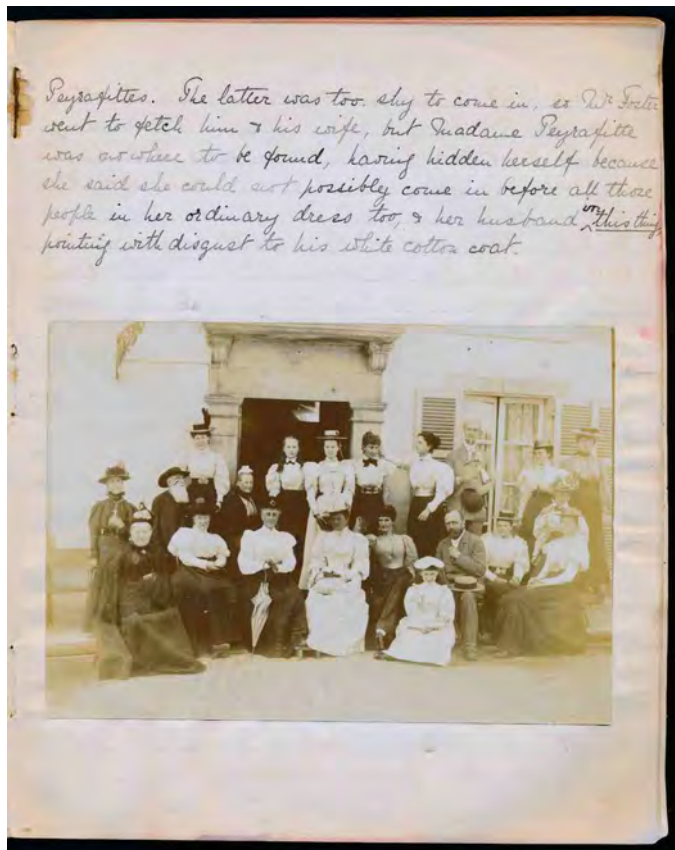 Peyrafittes. The latter was too shy to come in, so Mr Foster
went to fetch him & his wife, but Madame Peyrafitte
was nowhere to be found, having hidden herself because
she said she could not possibly come in before all those
people in her ordinary dress too, & her husband in this thing,
pointing with disgust to his white cotton coat.